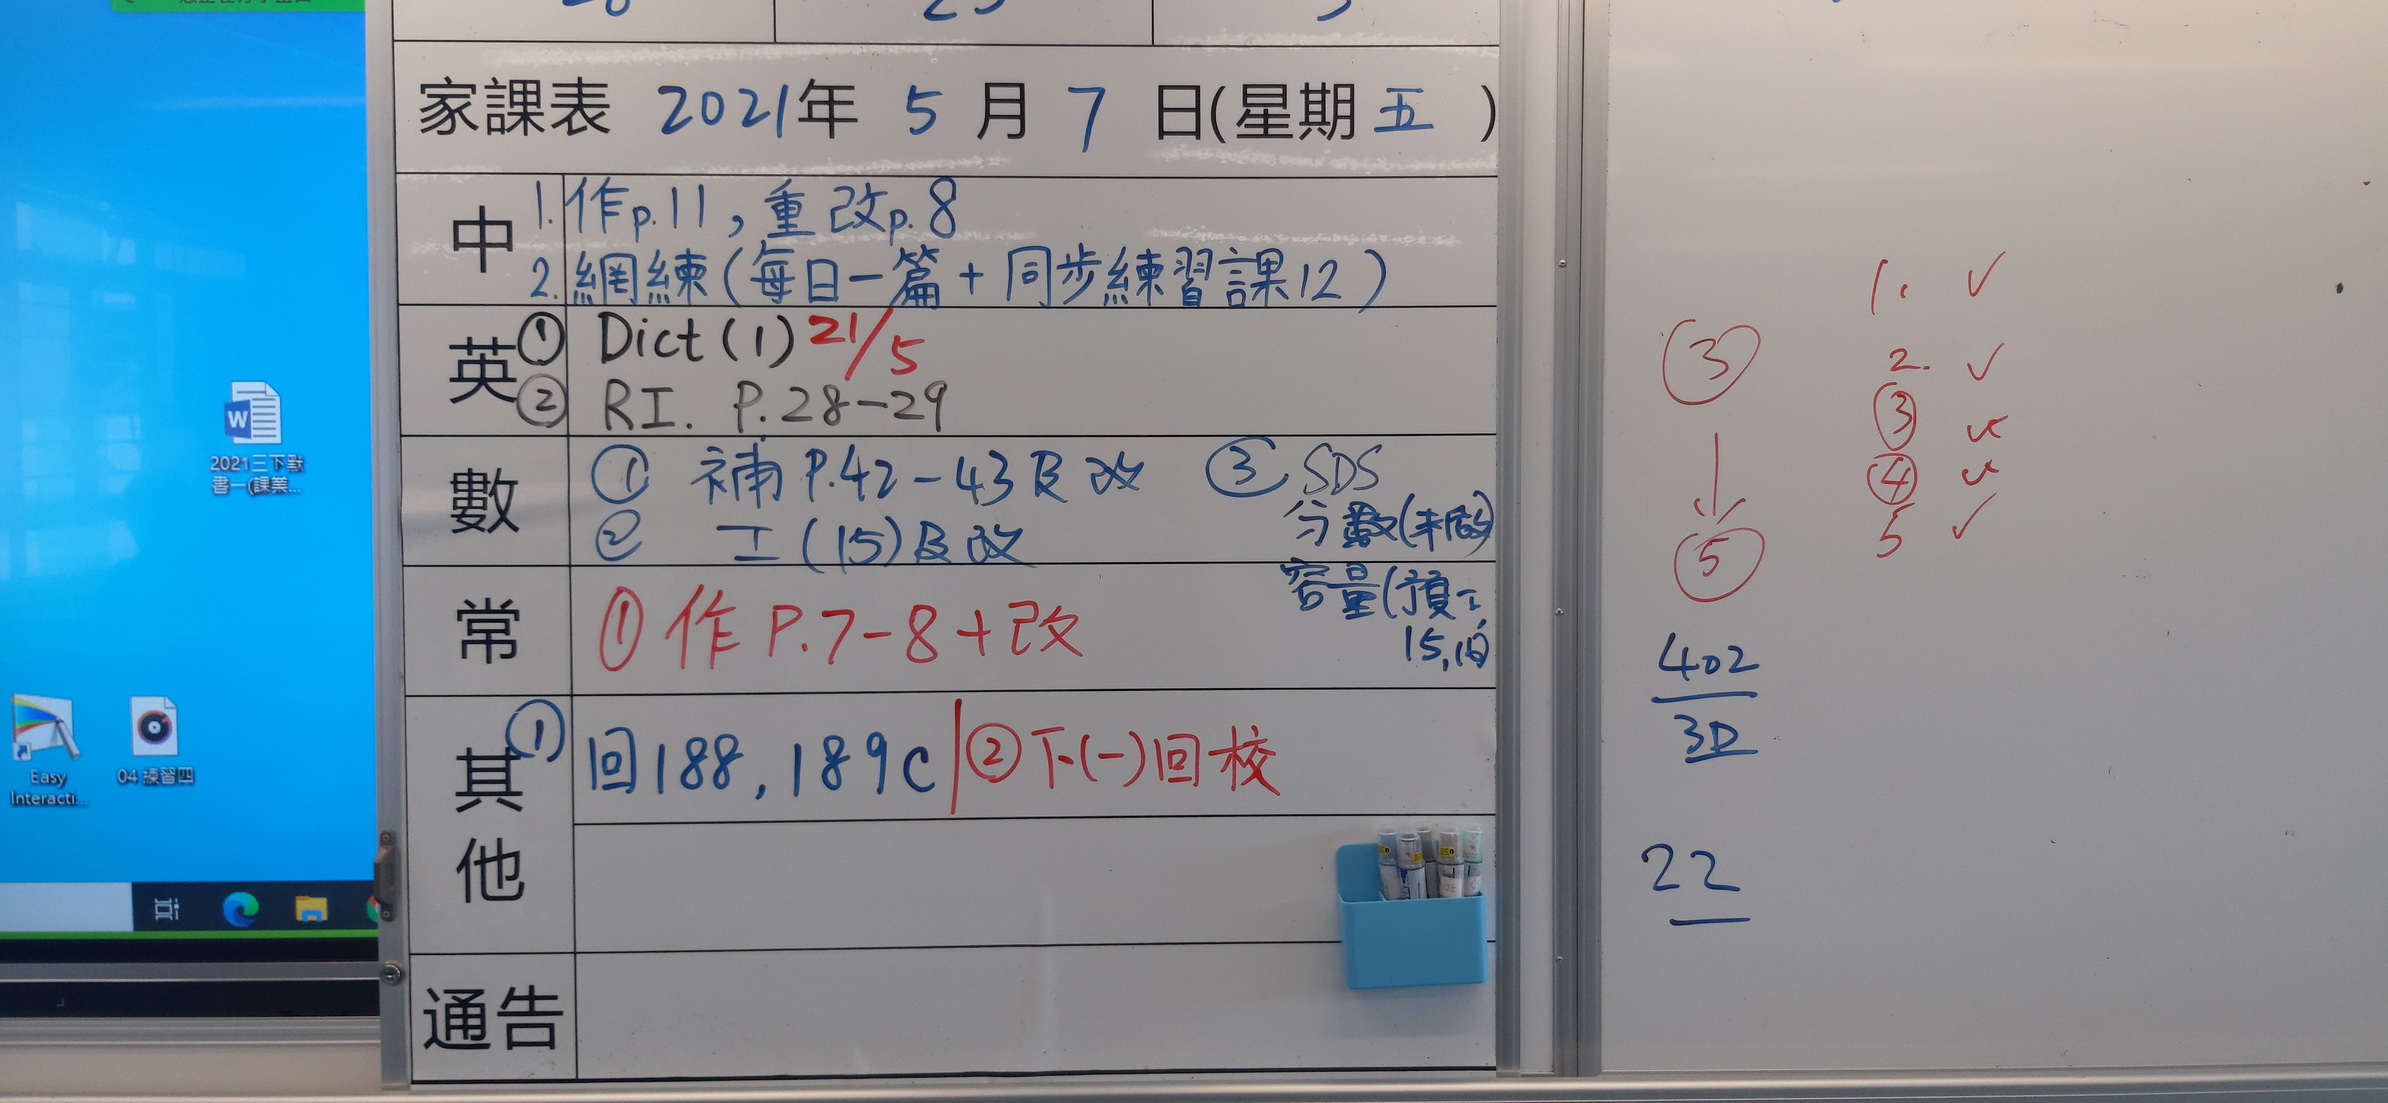 家課表 2021年 5 月 7 日(星期 五 )
中
1. 作p.11, 重改p.8
2. 網練(每日一篇 + 同步練習課12)
英
① Dict (1) 21/5
② RI. P.28-29
數
① 補 P.42-43及改
② 工(15)及改
③ SDS
分數(未做)
容量(預工
15,16)
常
① 作 P.7-8+改
其他
① 回188, 189c
② 下(一)回校
通告
2021三下默
書一(課業...
Easy
Interacti...
04 練習四
③
⑤
402
3D
22
1. ✓
2. ✓
③ ✓
④ ✓
5 ✓